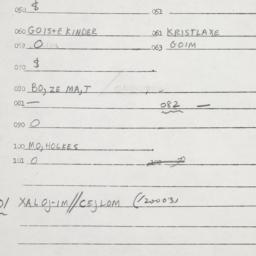 050 $ 052
060 GOISTE KINDER 061 KRISTLAXE
0 063 GOIM
070 $
080 BO,ZE MA,T
081 — 082 —
090 0
100 MO,HOLKES
101 0
XALOJ-IM//CEJLOM (120003)